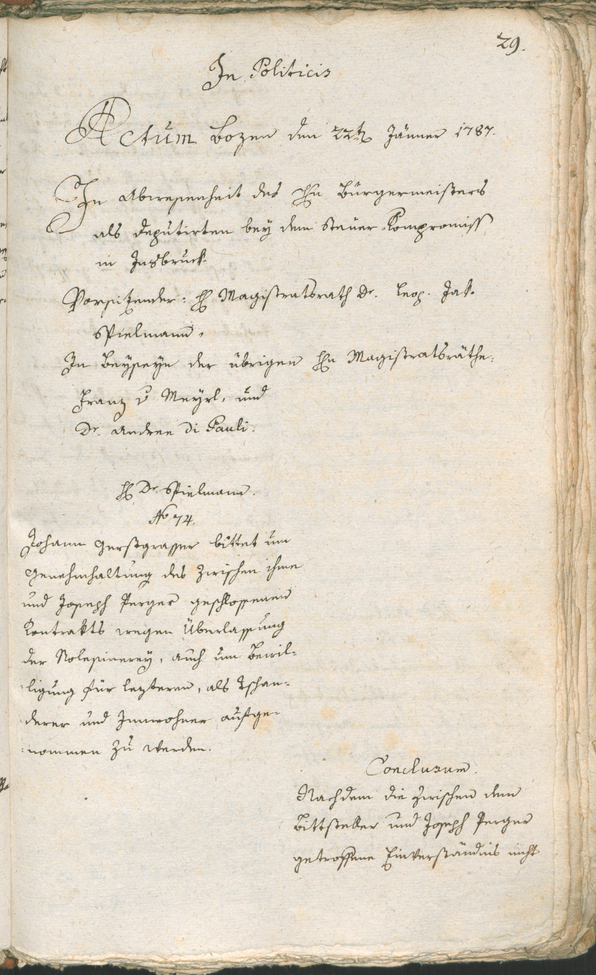 29.
In Politicis
Actum Bozen den 22t Jänner 1787.
In Abwesenheit des Hn Bürgermeisters
als Deputirten bey dem Steuer Kompromiss
in Insbruck.
Vorsitzender: H Magistratsrath Dr. Leop. Jak.
Spielmann.
In Beyseyn der übrigen Hn Magistratsräthe:
Franz v Mayrl, und
Dr. Andree Di Pauli:
H Dr. Spielmann.
No 74.
Johann Gerstgrasser bittet um
Genehmhaltung des zwischen ihme
und Joseph Perger geschlossenen
Kontrakts wegen Überlassung
der, auch um Bewil-
ligung für lezteren, als
derer und Innwohner aufge-
nommen zu werden.
Conclusum.
Nachdem die zwischen dem
Bittsteller und Joseph Perger
getroffene Einverständnis nicht